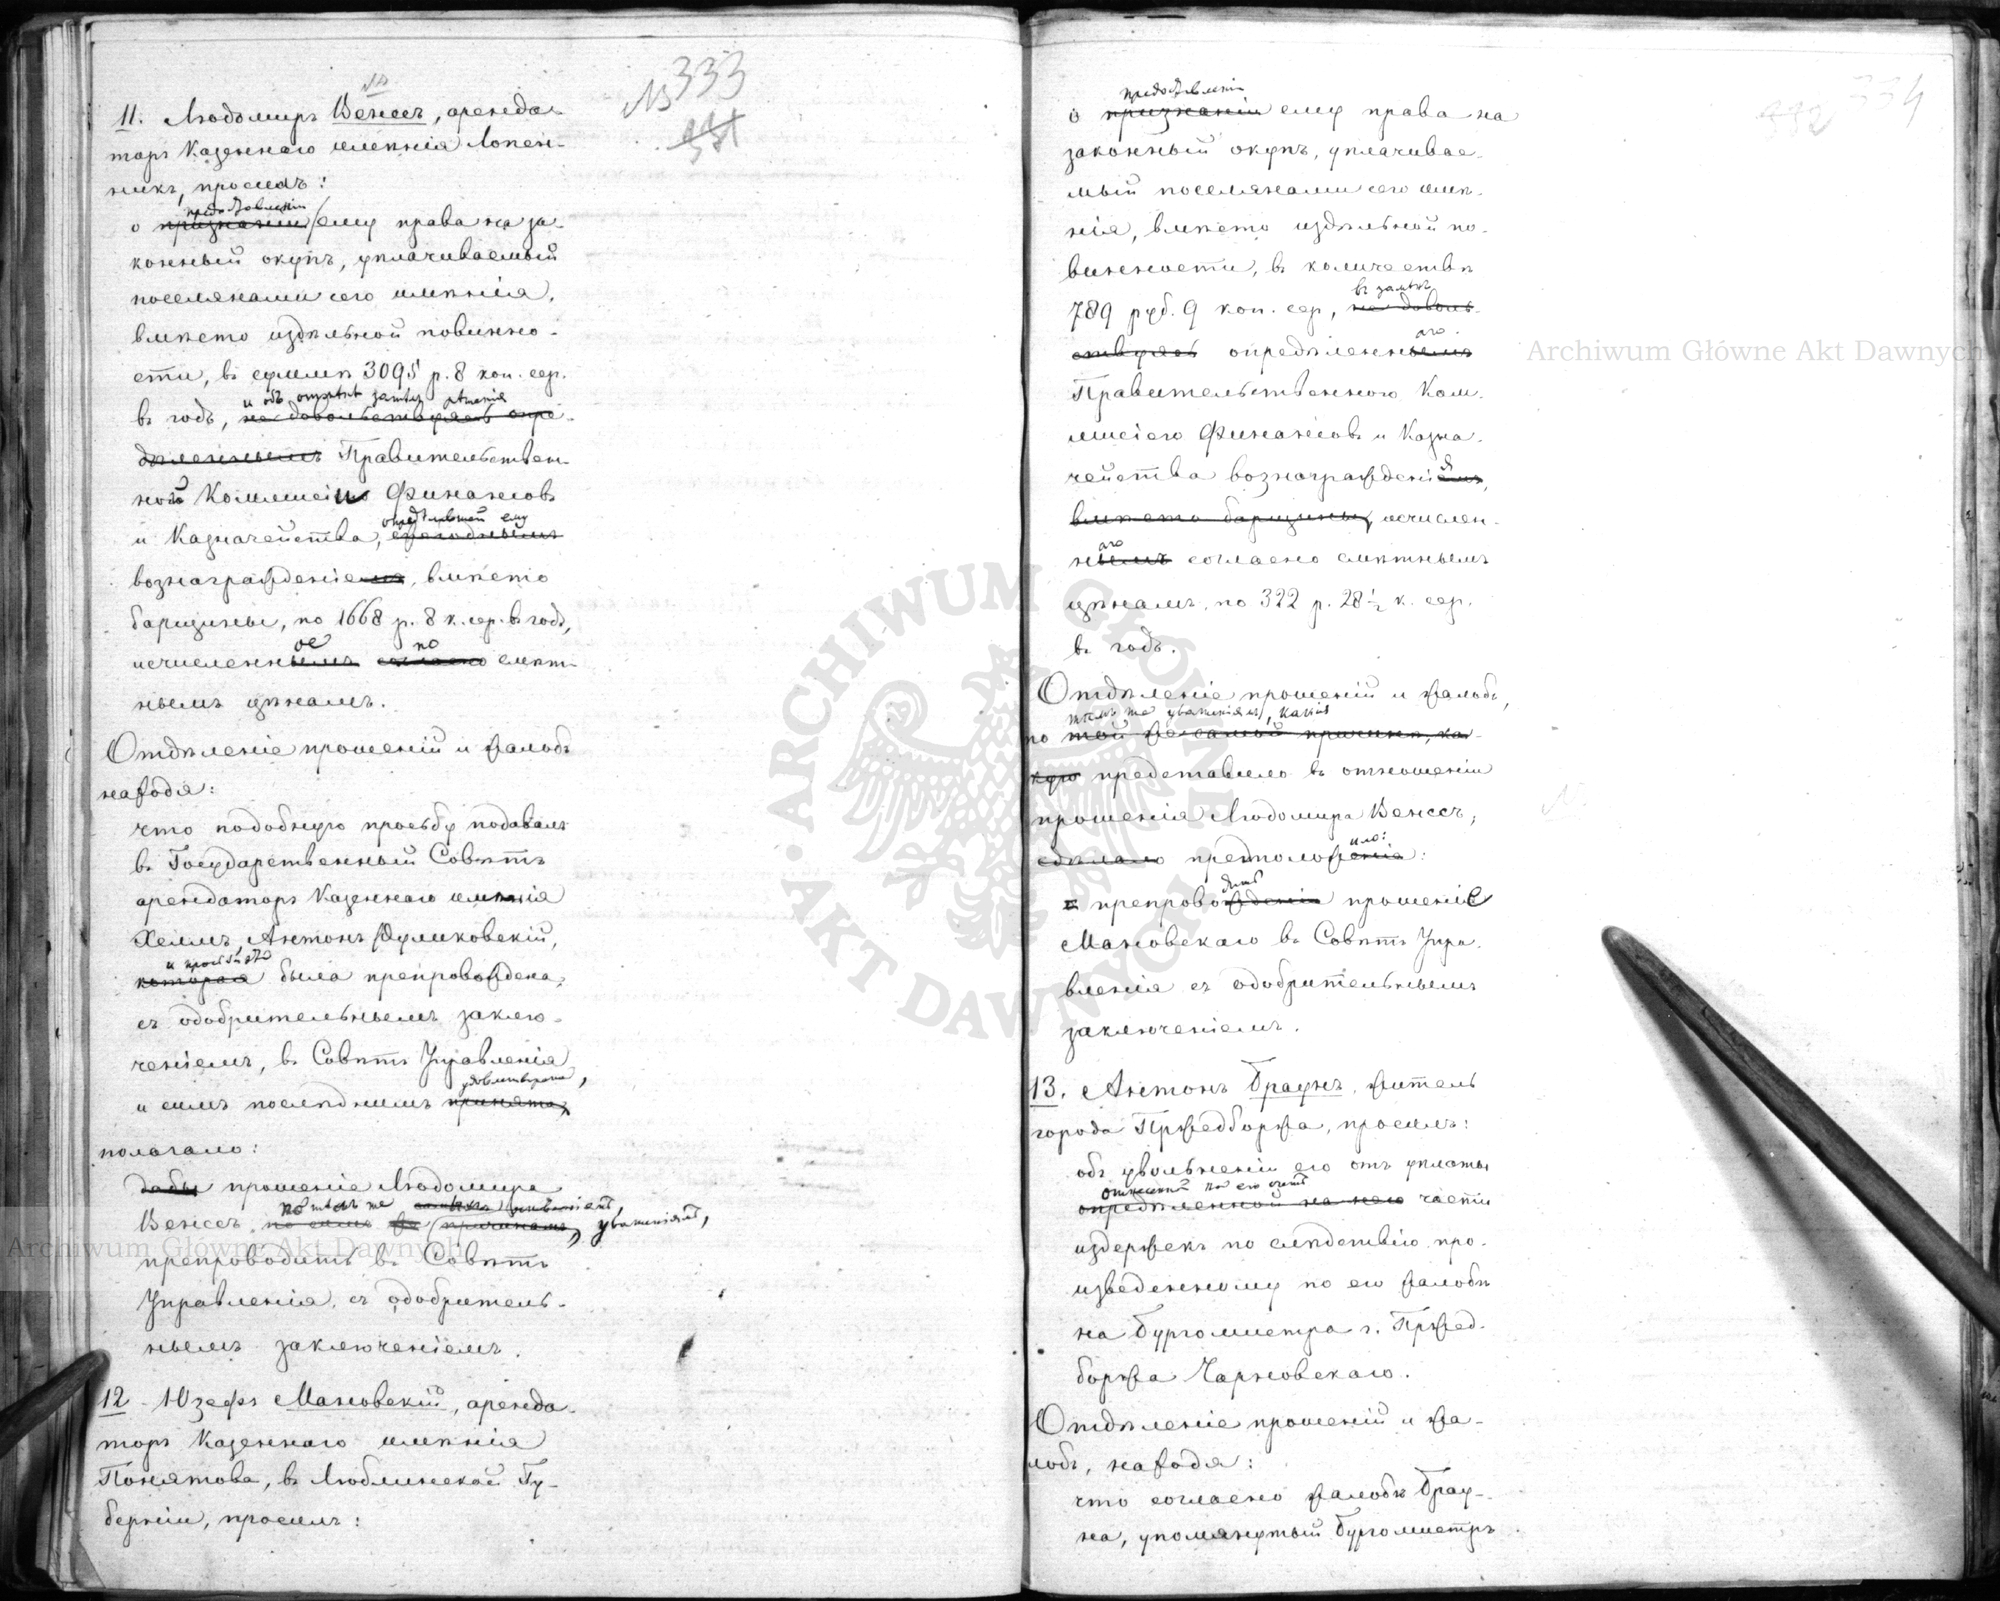 № 333
331
11. Людомиръ Венссъ, аренда-
торъ Казеннаго имѣнія Лопен-
никъ, просилъ:
предоставленіи
о признаніи ему права на за-
конный окупъ, уплачиваемый
поселянами сего имѣнія,
вмѣсто издѣльной повинно-
сти, въ суммѣ 3095 р. 8 коп. сер.
и объ отмѣнѣ затѣмъ рѣшенія
въ годъ, не довольствуясь опре-
дѣленнымъ Правительствен-
ной Коммисіи Финансовъ
опредѣлившей ему
и Казначейства, ежегоднымъ
вознагражденіемъ, вмѣсто
барщины, по 1668 р. 8 к. сер. въ годъ,
ое по
исчисленнымъ согласно смѣт-
нымъ цѣнамъ.
Отдѣленіе прошеній и жалобъ
находя:
что подобную просьбу подавалъ
въ Государственный Совѣтъ
арендаторъ Казеннаго имѣнія
Хелмъ, Антонъ Думиковскій,
и просьба эта
которая была препровождена,
съ одобрительнымъ заклю-
ченіемъ, въ Совѣтъ Управленія
удовлетворена,
и симъ послѣднимъ принята,
полагало:
дабы прошеніе Людомира
по тѣмъ же
Венссъ, по симъ же причинамъ, уваженіямъ,
препроводить въ Совѣтъ
Управленія, съ одобритель-
нымъ заключеніемъ.
12 Юзефъ Мановскій, аренда-
торъ Казеннаго имѣнія
Понятова, въ Люблинской Гу-
берніи, просилъ:
332 334
предоставленіи
о признаніи ему права на
законный окупъ, уплачивае-
мый поселянами сего имѣ-
нія, вмѣсто издѣльной по-
винности, въ количествѣ
въ замѣнъ
789 руб. 9 коп. сер., не доволь-
аго
ствуясь опредѣленнымъ
Правительственною Ком-
мисіею Финансовъ и Казна-
чейства вознагражденіемъ,
вмѣсто барщины, исчислен-
аго
нымъ согласно смѣтнымъ
цѣнамъ, по 322 р. 28½ к. сер.
въ годъ.
Отдѣленіе прошеній и жалобъ,
тѣмъ же уваженіямъ, какія
по той же самой причинѣ, ка-
кую представило въ отношеніи
прошенія Людомира Венссъ,
ило:
сдѣлало предположеніе:
дить
препровожденіи прошеніе
Мановскаго въ Совѣтъ Упра-
вленія съ одобрительнымъ
заключеніемъ.
13. Антонъ Браунъ, житель
города Пржедборжа, просилъ:
объ увольненіи его отъ уплаты
отнесенной на его счетъ
опредѣленной на него части
издержекъ по слѣдствію про-
изведенному по его жалобѣ
на бургомистра г. Пржед-
боржа Чарновскаго.
Отдѣленіе прошеній и жа-
лобъ, находя:
что согласно жалобѣ Брау-
на, упомянутый бургомистръ
Archiwum Główne Akt Dawnych
Archiwum Główne Akt Dawnych
ARCHIWUM GŁÓWNE · AKT DAWNYCH ·